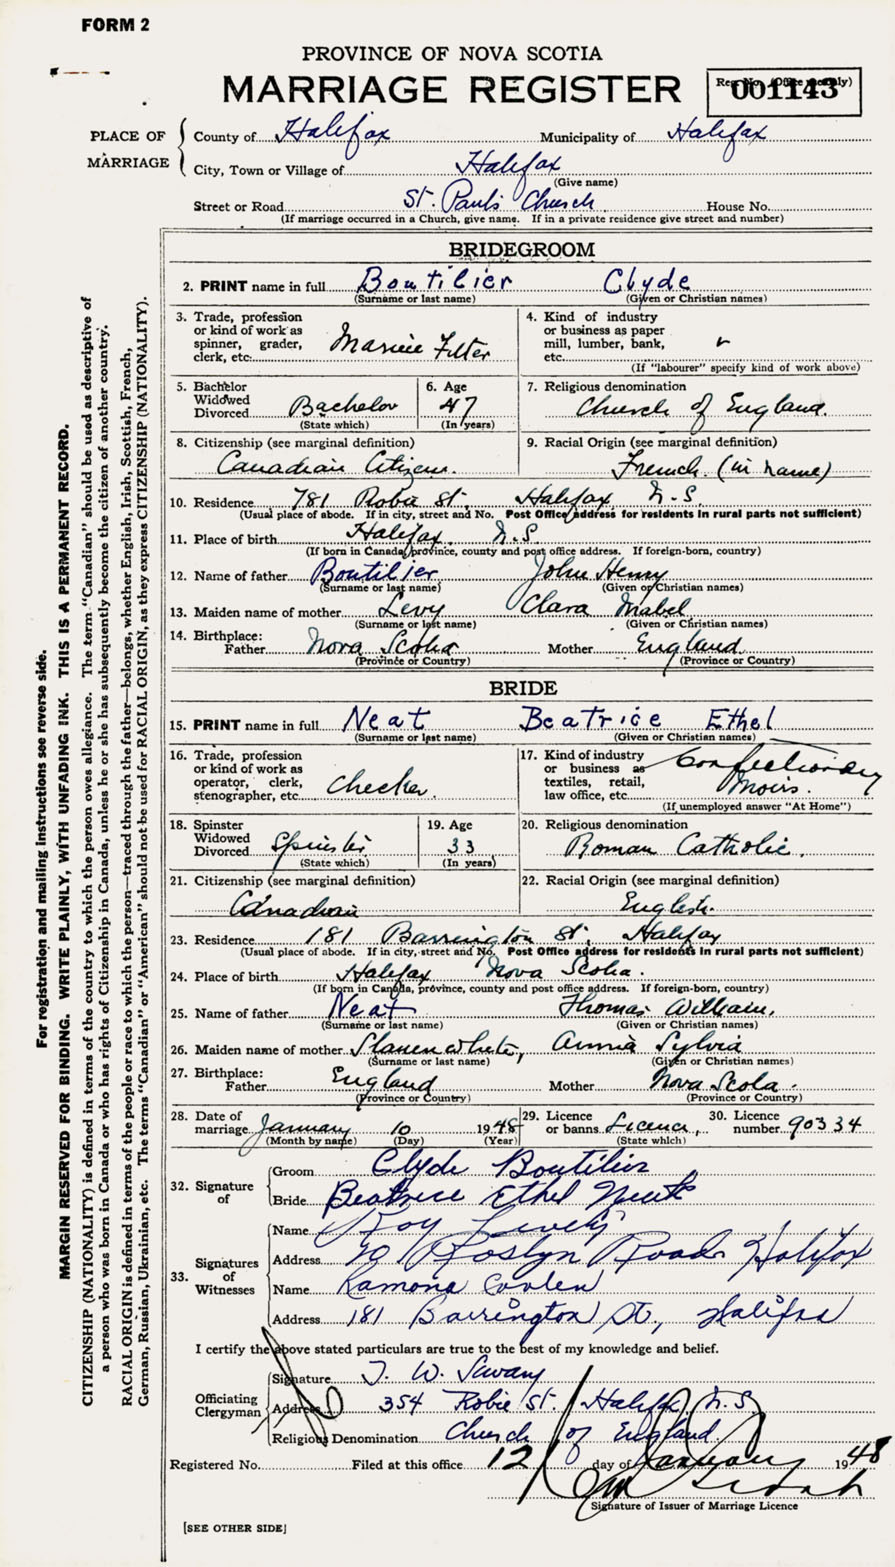 FORM 2
PROVINCE OF NOVA SCOTIA
MARRIAGE REGISTER
Reg. No. (Office use only)
001143
PLACE OF MARRIAGE
County of Halifax Municipality of Halifax
City, Town or Village of Halifax
(Give name)
Street or Road St. Paul's Church House No.
(If marriage occurred in a Church, give name. If in a private residence give street and number)
BRIDEGROOM
2. PRINT name in full Boutilier Clyde
(Surname or last name) (Given or Christian names)
3. Trade, profession or kind of work as spinner, grader, clerk, etc. Marine Fitter
4. Kind of industry or business as paper mill, lumber, bank, etc.
(If "labourer" specify kind of work above)
5. Bachelor Widowed Divorced Bachelor
(State which)
6. Age 47
(In years)
7. Religious denomination
Church of England.
8. Citizenship (see marginal definition)
Canadian Citizen.
9. Racial Origin (see marginal definition)
French. (in name)
10. Residence 781 Robie St. Halifax N.S.
(Usual place of abode. If in city, street and No. Post Office address for residents in rural parts not sufficient)
11. Place of birth Halifax. N.S.
(If born in Canada, province, county and post office address. If foreign-born, country)
12. Name of father Boutilier John Henry
(Surname or last name) (Given or Christian names)
13. Maiden name of mother Levy Clara Mabel
(Surname or last name) (Given or Christian names)
14. Birthplace:
Father Nova Scotia Mother England
(Province or Country) (Province or Country)
BRIDE
15. PRINT name in full Neat Beatrice Ethel
(Surname or last name) (Given or Christian names)
16. Trade, profession or kind of work as operator, clerk, stenographer, etc. Checker.
17. Kind of industry or business as textiles, retail, law office, etc. Confectionery Moirs.
(If unemployed answer "At Home")
18. Spinster Widowed Divorced Spinster
(State which)
19. Age 33
(In years)
20. Religious denomination
Roman Catholic.
21. Citizenship (see marginal definition)
Canadian
22. Racial Origin (see marginal definition)
English.
23. Residence 181 Barrington St. Halifax
(Usual place of abode. If in city, street and No. Post Office address for residents in rural parts not sufficient)
24. Place of birth Halifax Nova Scotia.
(If born in Canada, province, county and post office address. If foreign-born, country)
25. Name of father Neat Thomas William.
(Surname or last name) (Given or Christian names)
26. Maiden name of mother Annie Sylvia
(Surname or last name) (Given or Christian names)
27. Birthplace:
Father England Mother Nova Scotia.
(Province or Country) (Province or Country)
28. Date of marriage January 10 1948
(Month by name) (Day) (Year)
29. Licence or banns Licence,
(State which)
30. Licence number 90334
32. Signature of
Groom Clyde Boutilier
Bride Beatrice Ethel Neat
33. Signatures of Witnesses
Name Roy Lively
Address 70 Roslyn Road Halifax
Name Ramona
Address 181 Barrington St., Halifax
I certify the above stated particulars are true to the best of my knowledge and belief.
Officiating Clergyman
Signature T. W. Savary
Address 354 Robie St. Halifax N.S.
Religious Denomination Church of England.
Registered No. Filed at this office 12 day of January 1948
Signature of Issuer of Marriage Licence
[SEE OTHER SIDE]
For registration and mailing instructions see reverse side.
MARGIN RESERVED FOR BINDING. WRITE PLAINLY, WITH UNFADING INK. THIS IS A PERMANENT RECORD.
CITIZENSHIP (NATIONALITY) is defined in terms of the country to which the person owes allegiance. The term "Canadian" should be used as descriptive of
a person who was born in Canada or who has rights of Citizenship in Canada, unless he or she has subsequently become the citizen of another country.
RACIAL ORIGIN is defined in terms of the people or race to which the person—traced through the father—belongs, whether English, Irish, Scottish, French,
German, Russian, Ukrainian, etc. The terms "Canadian" or "American" should not be used for RACIAL ORIGIN, as they express CITIZENSHIP (NATIONALITY).